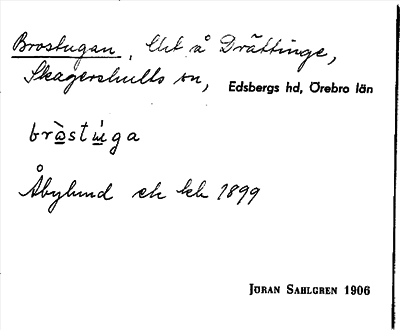 Brostugan, lht å Drättinge,
Skagershults sn, Edsbergs hd, Örebro län
bràstu̇ga
Åbylund ek kb 1899
JÖRAN SAHLGREN 1906